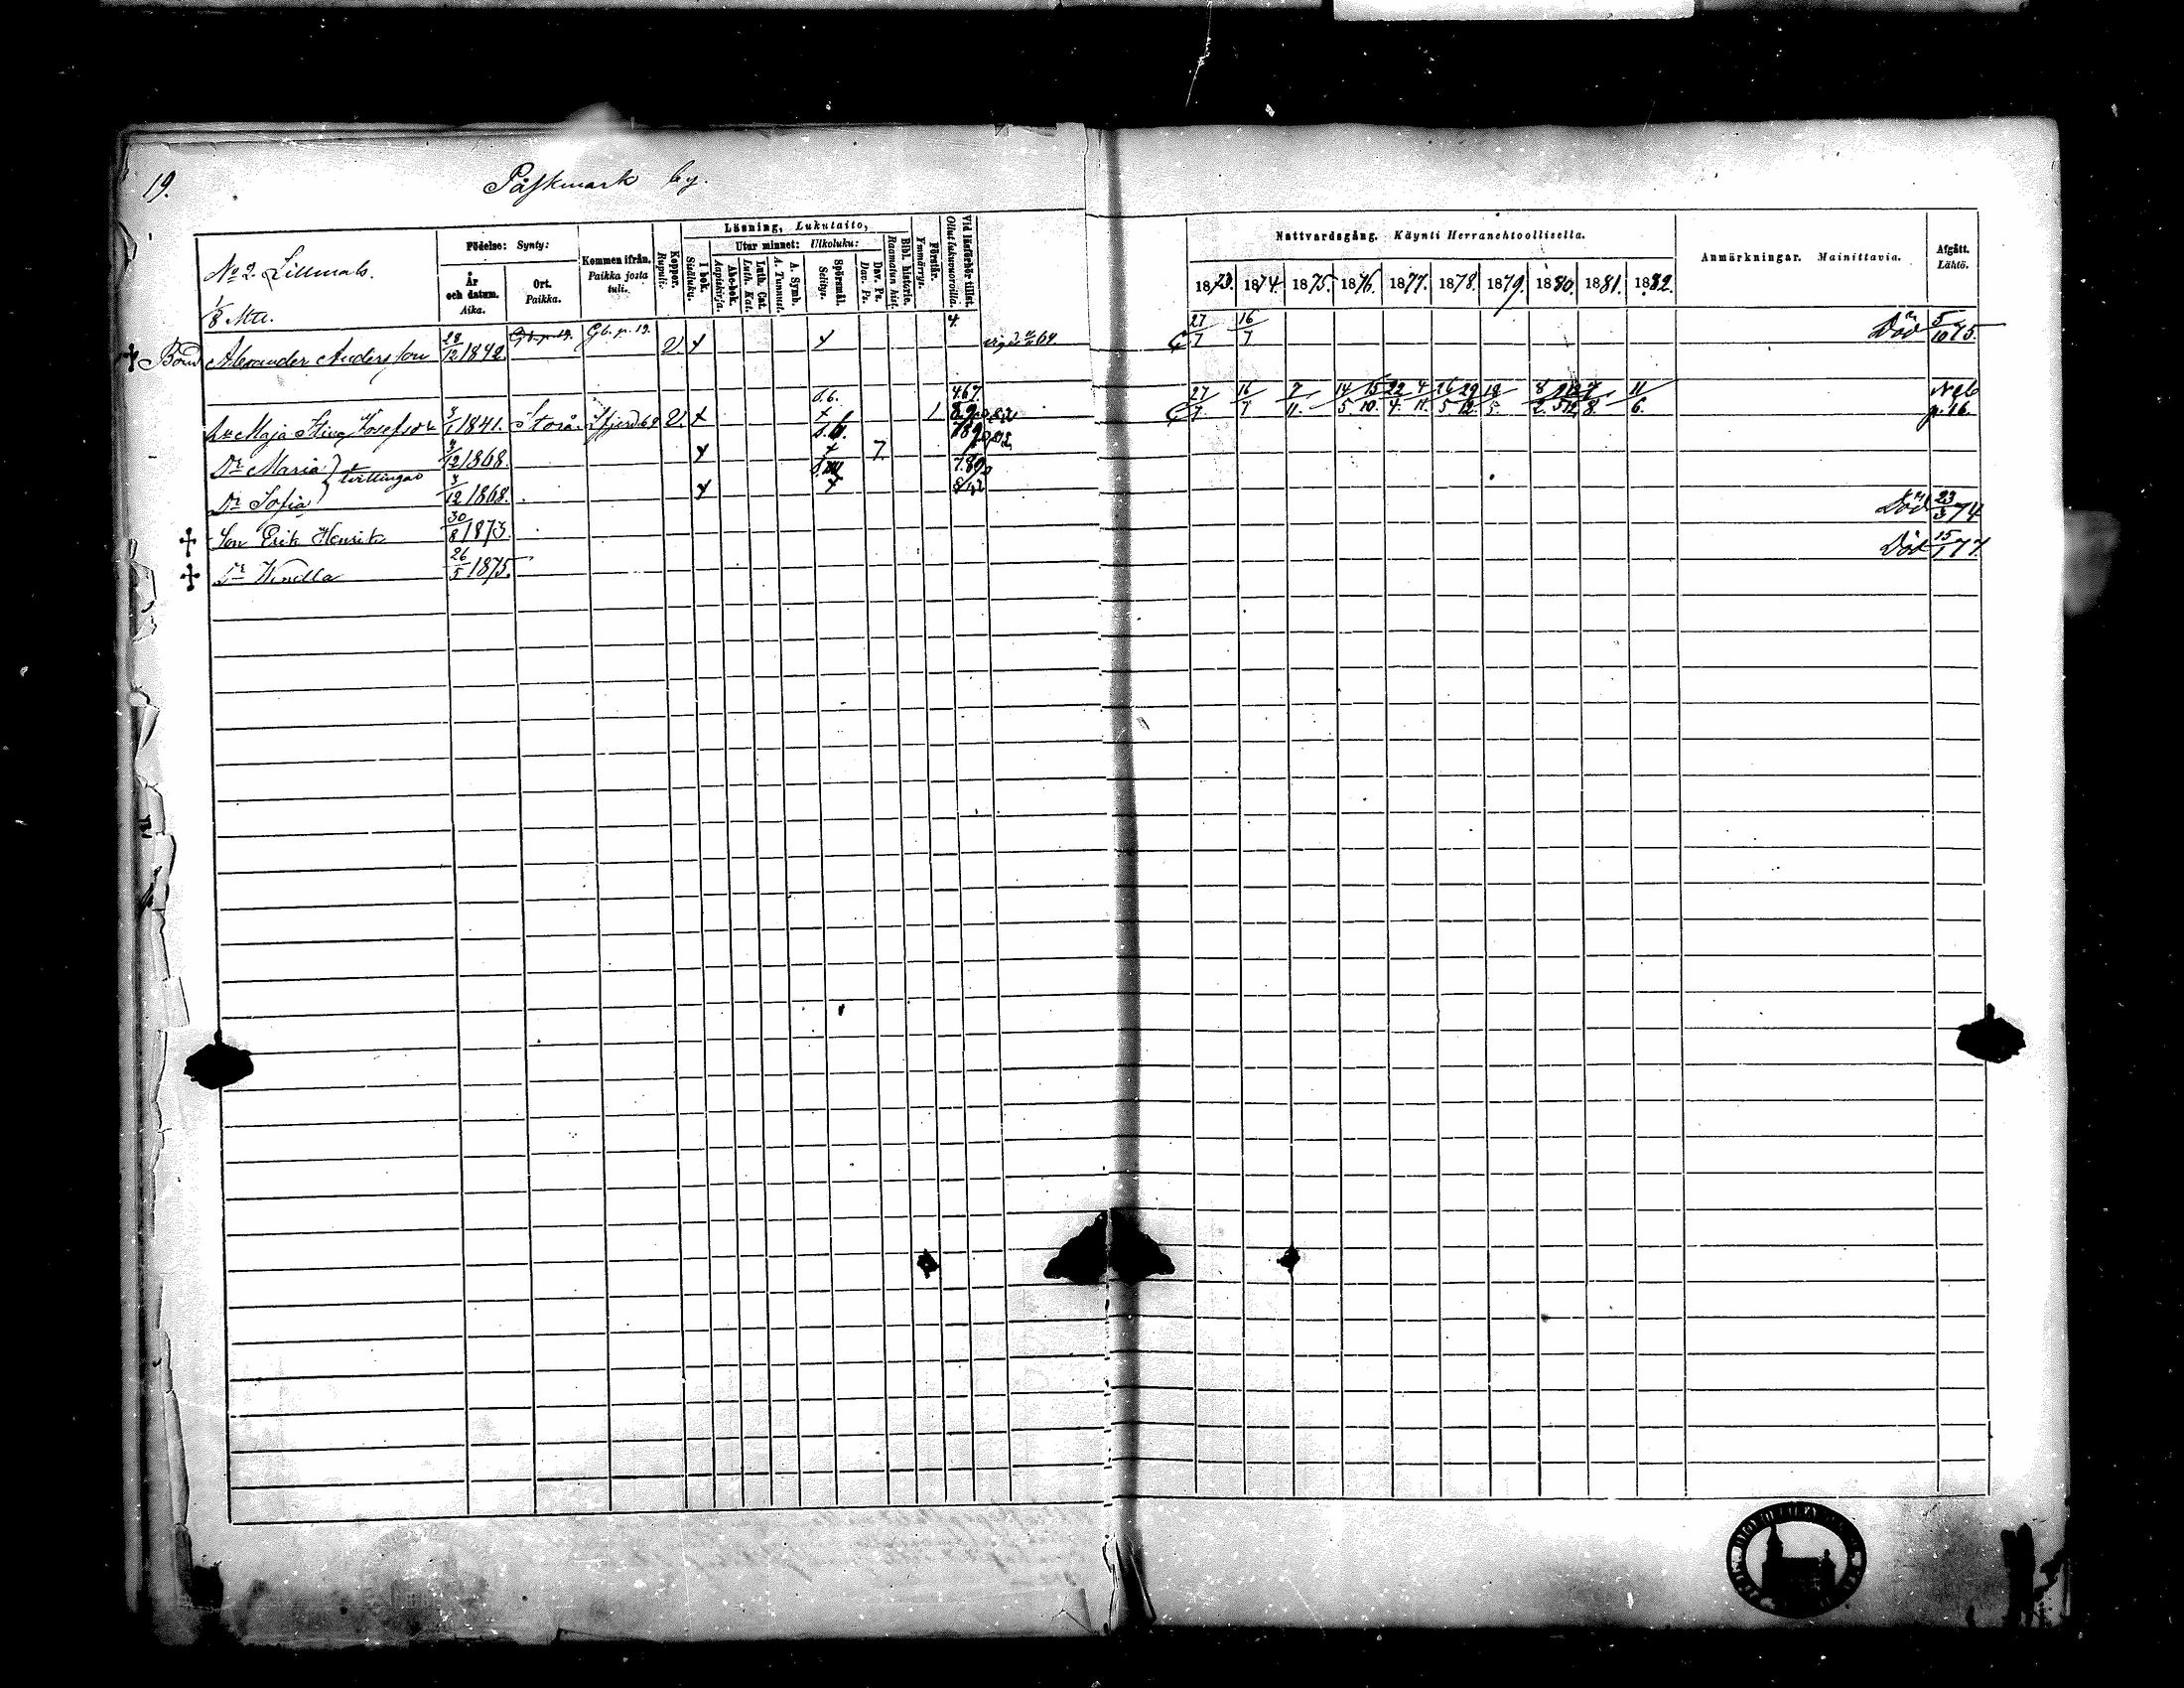 19.
Påskmark by.
No 2. Lillmåls.
1/8 Mtl.
Födelse: Synty:
År och datum. Aika.
Ort. Paikka.
Kommen ifrån. Paikka josta tuli.
Koppor. Rupuli.
Läsning, Lukutaito,
I bok. Sisäluku.
Utur minnet: Ulkoluku:
Abc-bok. Aapiskirja.
Luth. Cat. Luth. Kat.
A. Symb. A. Tunnust.
Spörsmål. Selitys.
Dav. Ps. Dav. Ps.
Bibl. historia. Raamatun hist.
Förstår. Ymmärrys.
Vid läsförhör tillst. Ollut lukuvuoroilla.
Nattvardsgång. Käynti Herranehtoollisella.
1873. 1874. 1875. 1876. 1877. 1878. 1879. 1880. 1881. 1882.
Anmärkningar. Mainittavia.
Afgått. Lähtö.
Bond Alexander Andersson 28/12 1842. Gb. p. 19. Gb. p. 19. V. x x 4. 64 27/7 16/7 Död 5/10 75.
Maja Stina Josefsdr 3/1 1841. Storå. V. x x 1 27/7 16/7 7/11. 14/5 15/10. 22/4. 4/11. 26/5 29/12. 18/5. 11/6. Neb p. 16.
Dr Maria } tvillingar 3/12 1868. x x 7.
Dr Sofia 3/12 1868. x x
Son Erik Henrik 30/8 1873. Död 23/3 74
Dr Vendla 26/5 1875. Död 15/1 77.